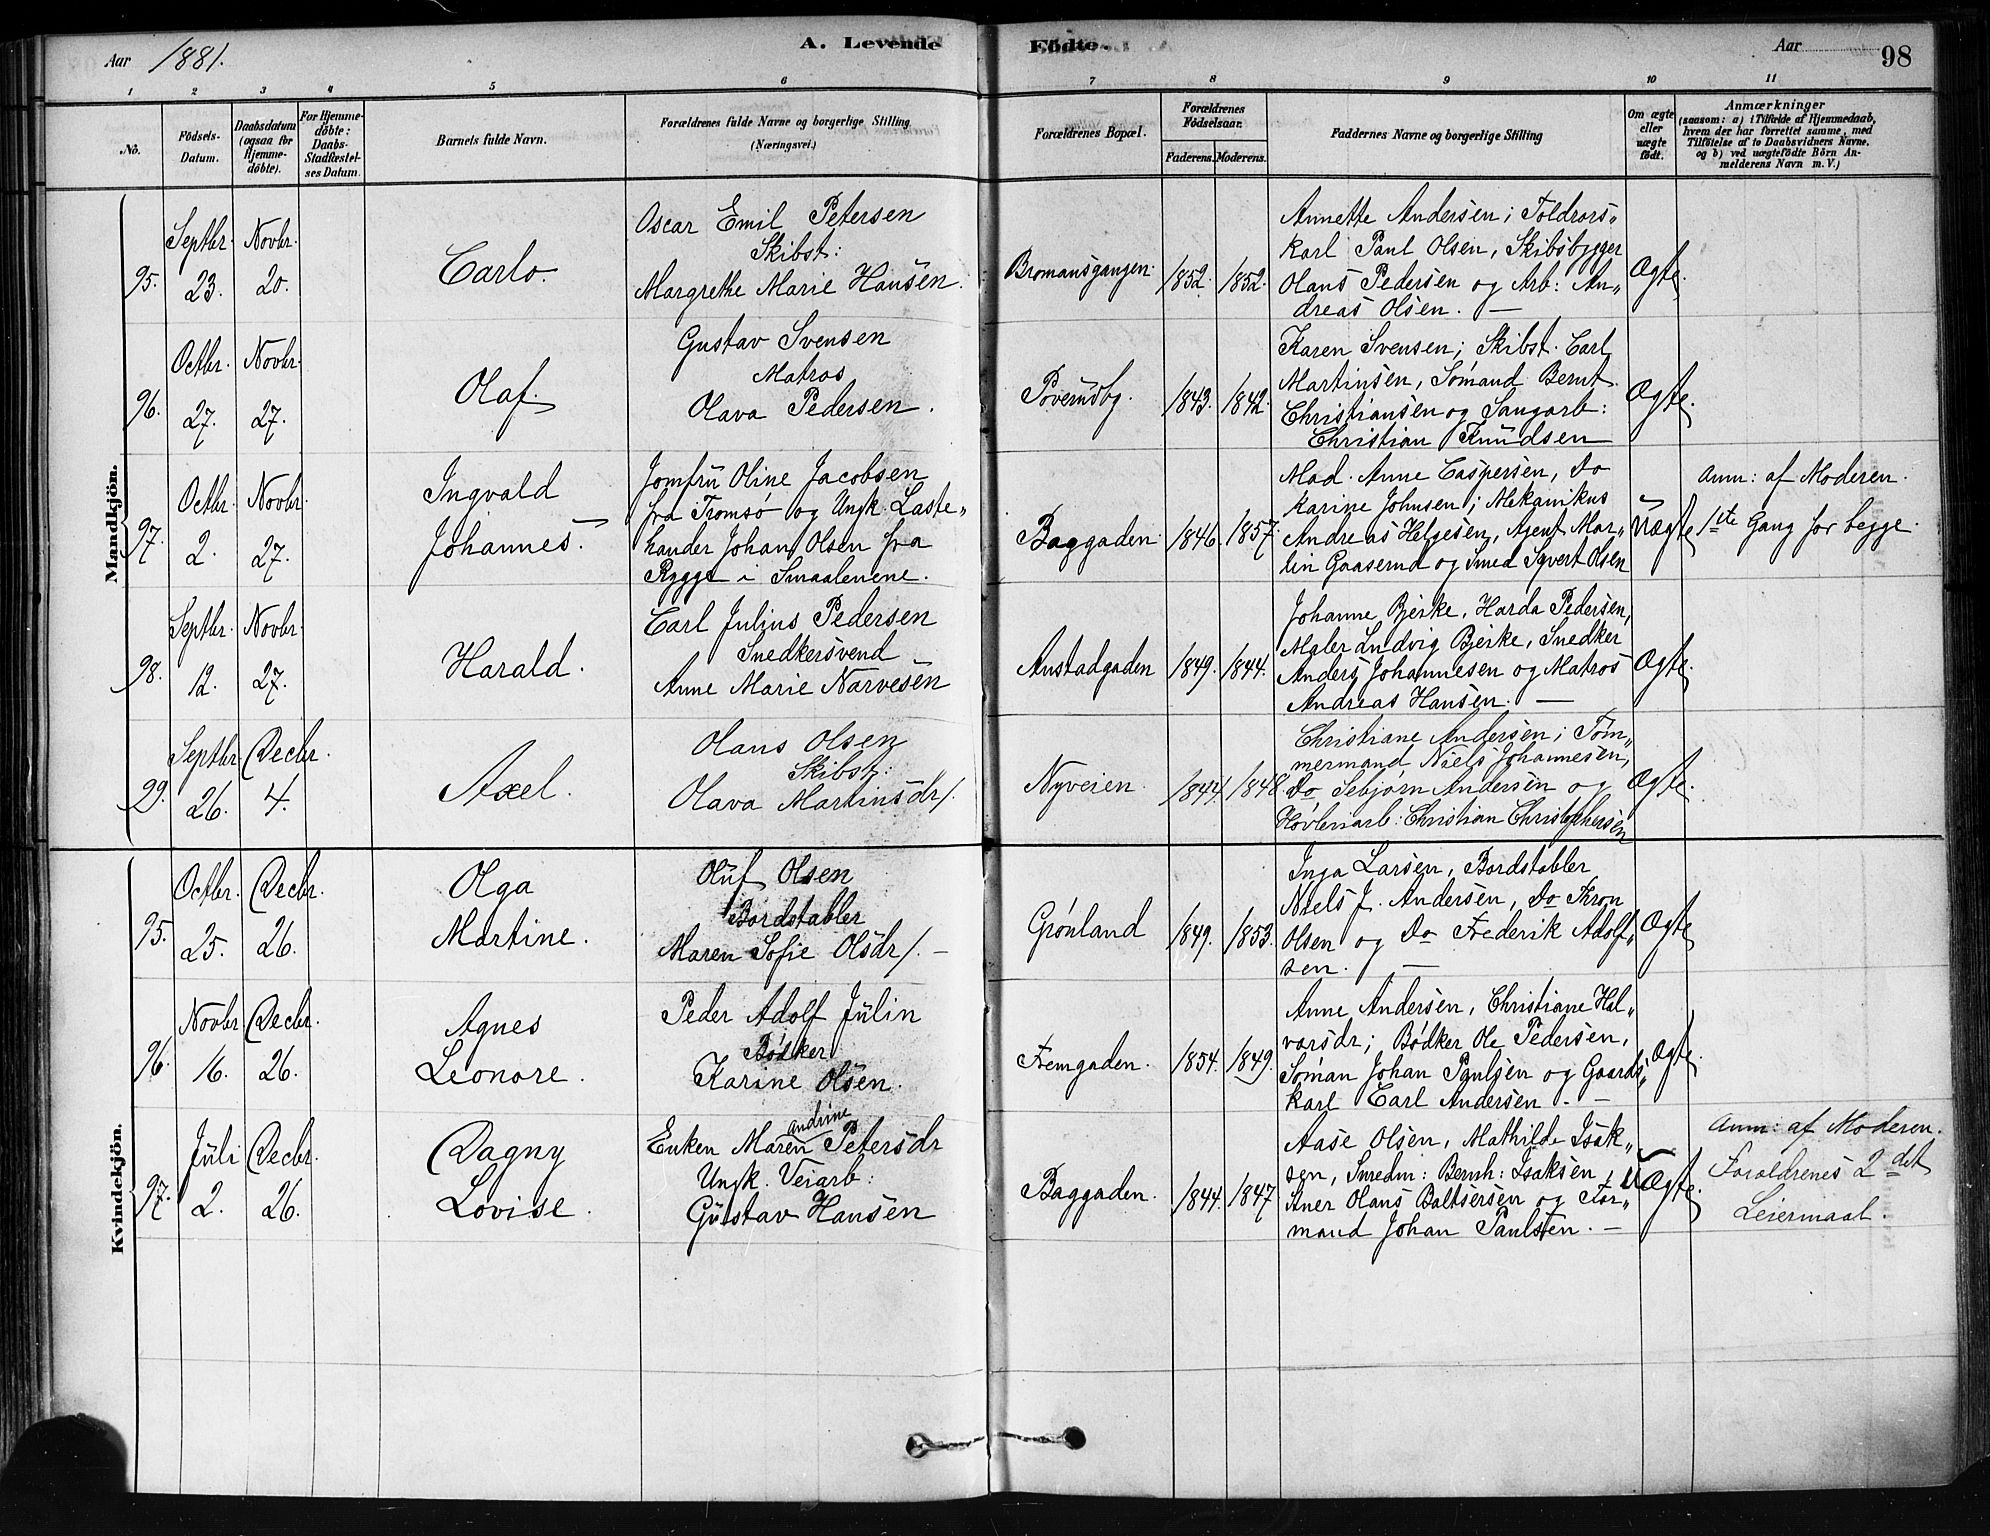 Aar 1881. A. Levende Födte. Aar 98
1 2 3 4 5 6 7 8 9 10 11
No. Födsels-Datum. Daabsdatum (ogsaa for Hjemme-döbte). For Hjemme-döbte: Daabs-Stadfæstel-ses Datum. Barnets fulde Navn. Forældrenes fulde Navne og borgerlige Stilling (Næringsvei.) Forældrenes Bopæl. Forældrenes Födselsaar. Faderens. Moderens. Faddernes Navne og borgerlige Stilling Om ægte eller uægte født. Anmærkninger
(saasom: a) i Tilfælde af Hjemmedaab,
hvem der har forrettet samme, med
Tilföielse af to Daabsvidners Navne,
og b) ved uægtefödte Börn An-
melderens Navn m. V.)
Mandkjön.
95. Septbr. 23. Novbr. 20. Carlo.
Oscar Emil Petersen
Skibst:
Margrethe Marie Hansen.
Bromansgangen. 1852. 1852.
Annette Andersen; Toldrors„
karl Paul Olsen, Skibsbygger
Olans Pedersen og Arb: An„
dreas Olsen. —
Ægte.
96. Octbr. 27. Novbr. 27. Olaf.
Gustav Svensen
Matros
Olava Pedersen.
Poverudbg. 1843. 1842.
Karen Svensen; Skibst. Carl
Martinsen, Sömand Bernt
Christiansen og Saugarb:
Christian Knudsen
Ægte.
97. Octbr. 2. Novbr. 27. Ingvald
Johannes.
Jomfru Oline Jacobsen
fra Tromsø og Ungk. Laste„
hander Johan Olsen fra
Rygge i Smaalenene.
Baggaden. 1846. 1857.
Mad. Anne Caspersen, Do
Karine Johnsen; Mekanikus
Andreas Helgesen, Agent Mar„
tin Gaaserud og Smed Syvert Olsen
Uægte
Anm: af Moderen.
1ste Gang for begge.
98. Septbr. 12. Novbr. 27. Harald.
Carl Julius Pedersen
Snedkersvend
Anne Marie Narvesen
Anstadgaden 1849. 1844.
Johanne Bjerke, Harda Pedersen,
Maler Ludvig Bjerke, Snedker
Anders Johannesen og Matros
Andreas Hansen. —
Ægte.
99. Septbr. 26. Decbr. 4. Axel.
Olaus Olsen
Skibst:
Olava Martinsdr/.
Nyveien. 1844. 1848
Christiane Andersen; Töm„
mermand Niels Johannesen,
Do Sebjørn Andersen og
Høvleriarb: Christian Christophersen
Ægte.
Kvindekjön.
95. Octbr. 25. Decbr. 26. Olga
Martine.
Oluf Olsen
Bordstabler
Maren Sofie Olsdr/. —
Grønland 1849. 1853.
Inga Larsen, Bordstabler
Niels J. Andersen, Do Thron
Olsen og Do Frederik Adolf„
sen. —
Ægte
96. Novbr 16. Decbr. 26. Agnes
Leonore.
Peder Adolf Julin
Bødker
Karine Olsen.
Fremgaden. 1854. 1849.
Anne Andersen, Christiane Hal„
vorsdr; Bødker Ole Pedersen,
Söman Johan Paulsen og Gaards„
karl Carl Andersen. —
Ægte.
97. Juli 2. Decbr. 26. Dagny
Lovise.
Enken Maren Andrine Petersdr
Ungk. Veiarb:
Gustav Hansen
Baggaden. 1844. 1847
Aase Olsen, Mathilde Isak„
sen, Smedm: Bernh: Isaksen,
Aner Olaus Baltsersen og For„
mand Johan Paulsen. —
UÆgte.
Anm: af Moderen.
Forældrenes 2det
Leiermaal.